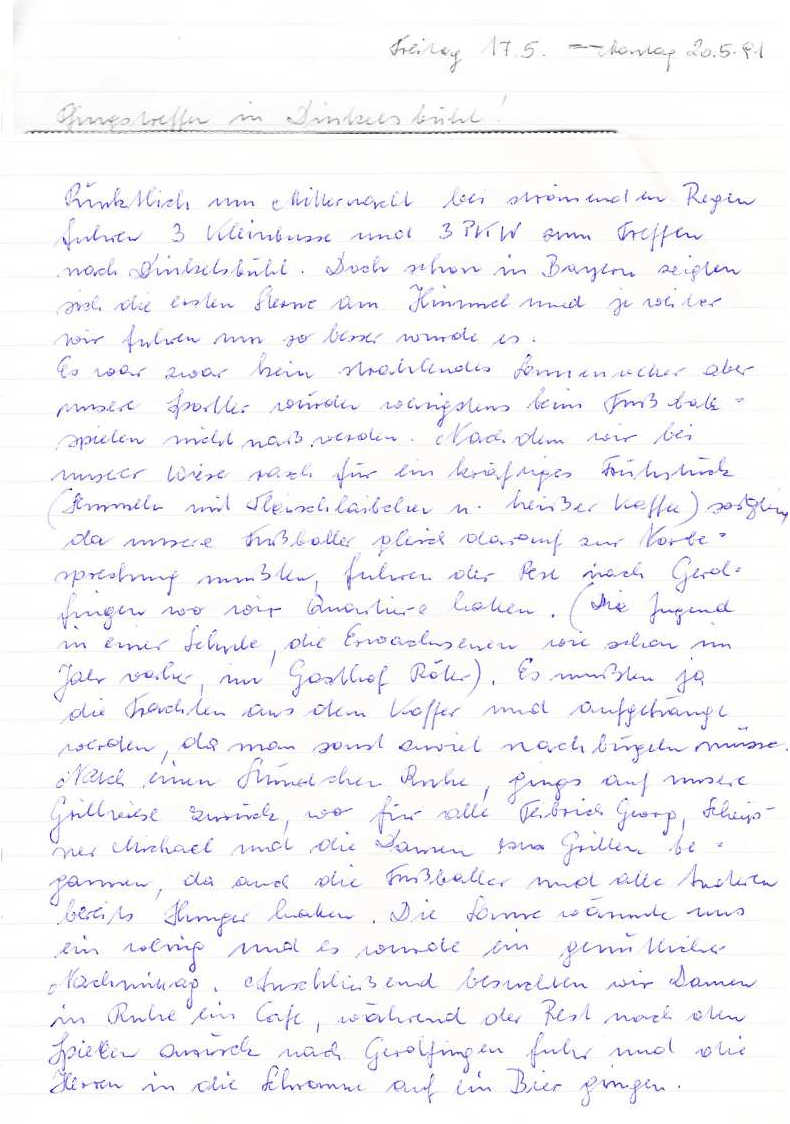 Freitag 17.5. – Montag 20.5.91
Pfingstreffen in Dinkelsbühl!
Pünktlich um Mitternacht bei strömenden Regen
fuhren 3 Kleinbusse und 3 PKW zum Treffen
nach Dinkelsbühl. Doch schon in Bayern zeigten
sich die ersten Sterne am Himmel und je weiter
wir fuhren um so besser wurde es.
Es war zwar kein strahlendes Sonnenwetter aber
unsere Sportler würden wenigstens beim Fußball-
spielen nicht naß werden. Nach dem wir bei
unserer Wiese rasch für ein kräftiges Frühstück
(Semmeln mit Fleischlaibchen u. heißer Kaffee) sorgten,
da unsere Fußballer gleich darauf zur Vorbe-
sprechung mußten, fuhren der Rest nach Gerol-
fingen wo wir Quartiere haben. (Die Jugend
in einer Schule, die Erwachsenen wie schon im
Jahr vorher, im Gasthof Röter). Es mußten ja
die Trachten aus dem Koffer und aufgehängt
werden, da man sonst zuviel nachbügeln müsse.
Nach einen Stündchen Ruhe, gings auf unsere
Grillwiese zurück, wo für alle Georg,
Michael und die Damen zum Grillen be-
gannen, da auch die Fußballer und alle Anderen
bereits Hunger haben. Die Sonne wärmte uns
ein wenig und es wurde ein gemütlicher
Nachmittag. Anschließend besuchten wir Damen
in Ruhe ein Cafe, während der Rest nach den
Spielen zurück nach Gerolfingen fuhr und die
Herren in die Schranne auf ein Bier gingen.